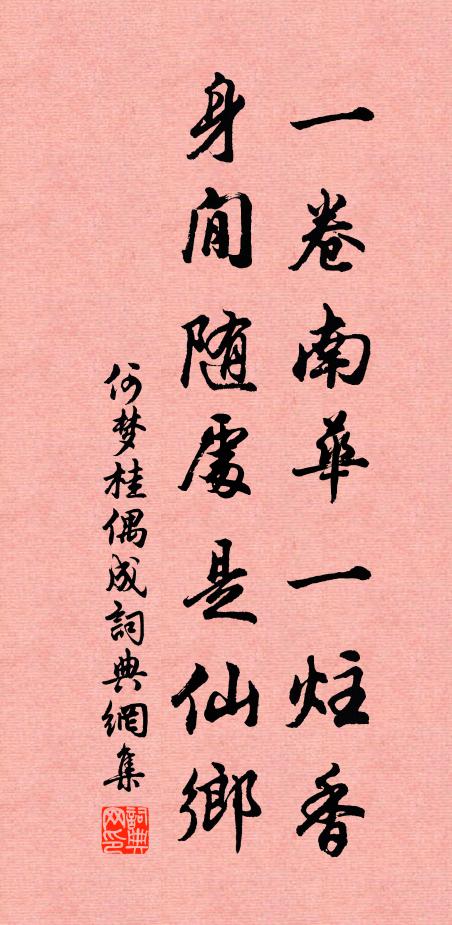 一卷南華一炷香
身閒随處是仙鄉
何梦桂偶成詞典網集
詞典网印